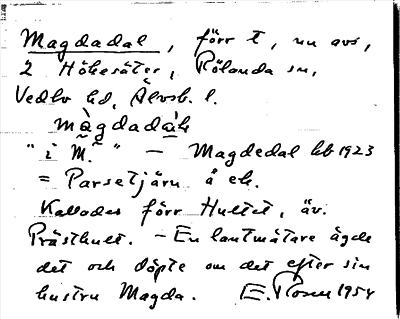 Magdadal, förr t, nu avs,
2 Hökesäter, Rölanda sn,
Vedbo hd, Älvsb. l.
màgdadàl
"i M." — Magdedal hb 1923
= Parsetjärn å ek.
Kallades förr Hultet, äv.
Prästhult. – En lantmätare ägde
det och döpte om det efter sin
hustru Magda. E. Rosen 1954